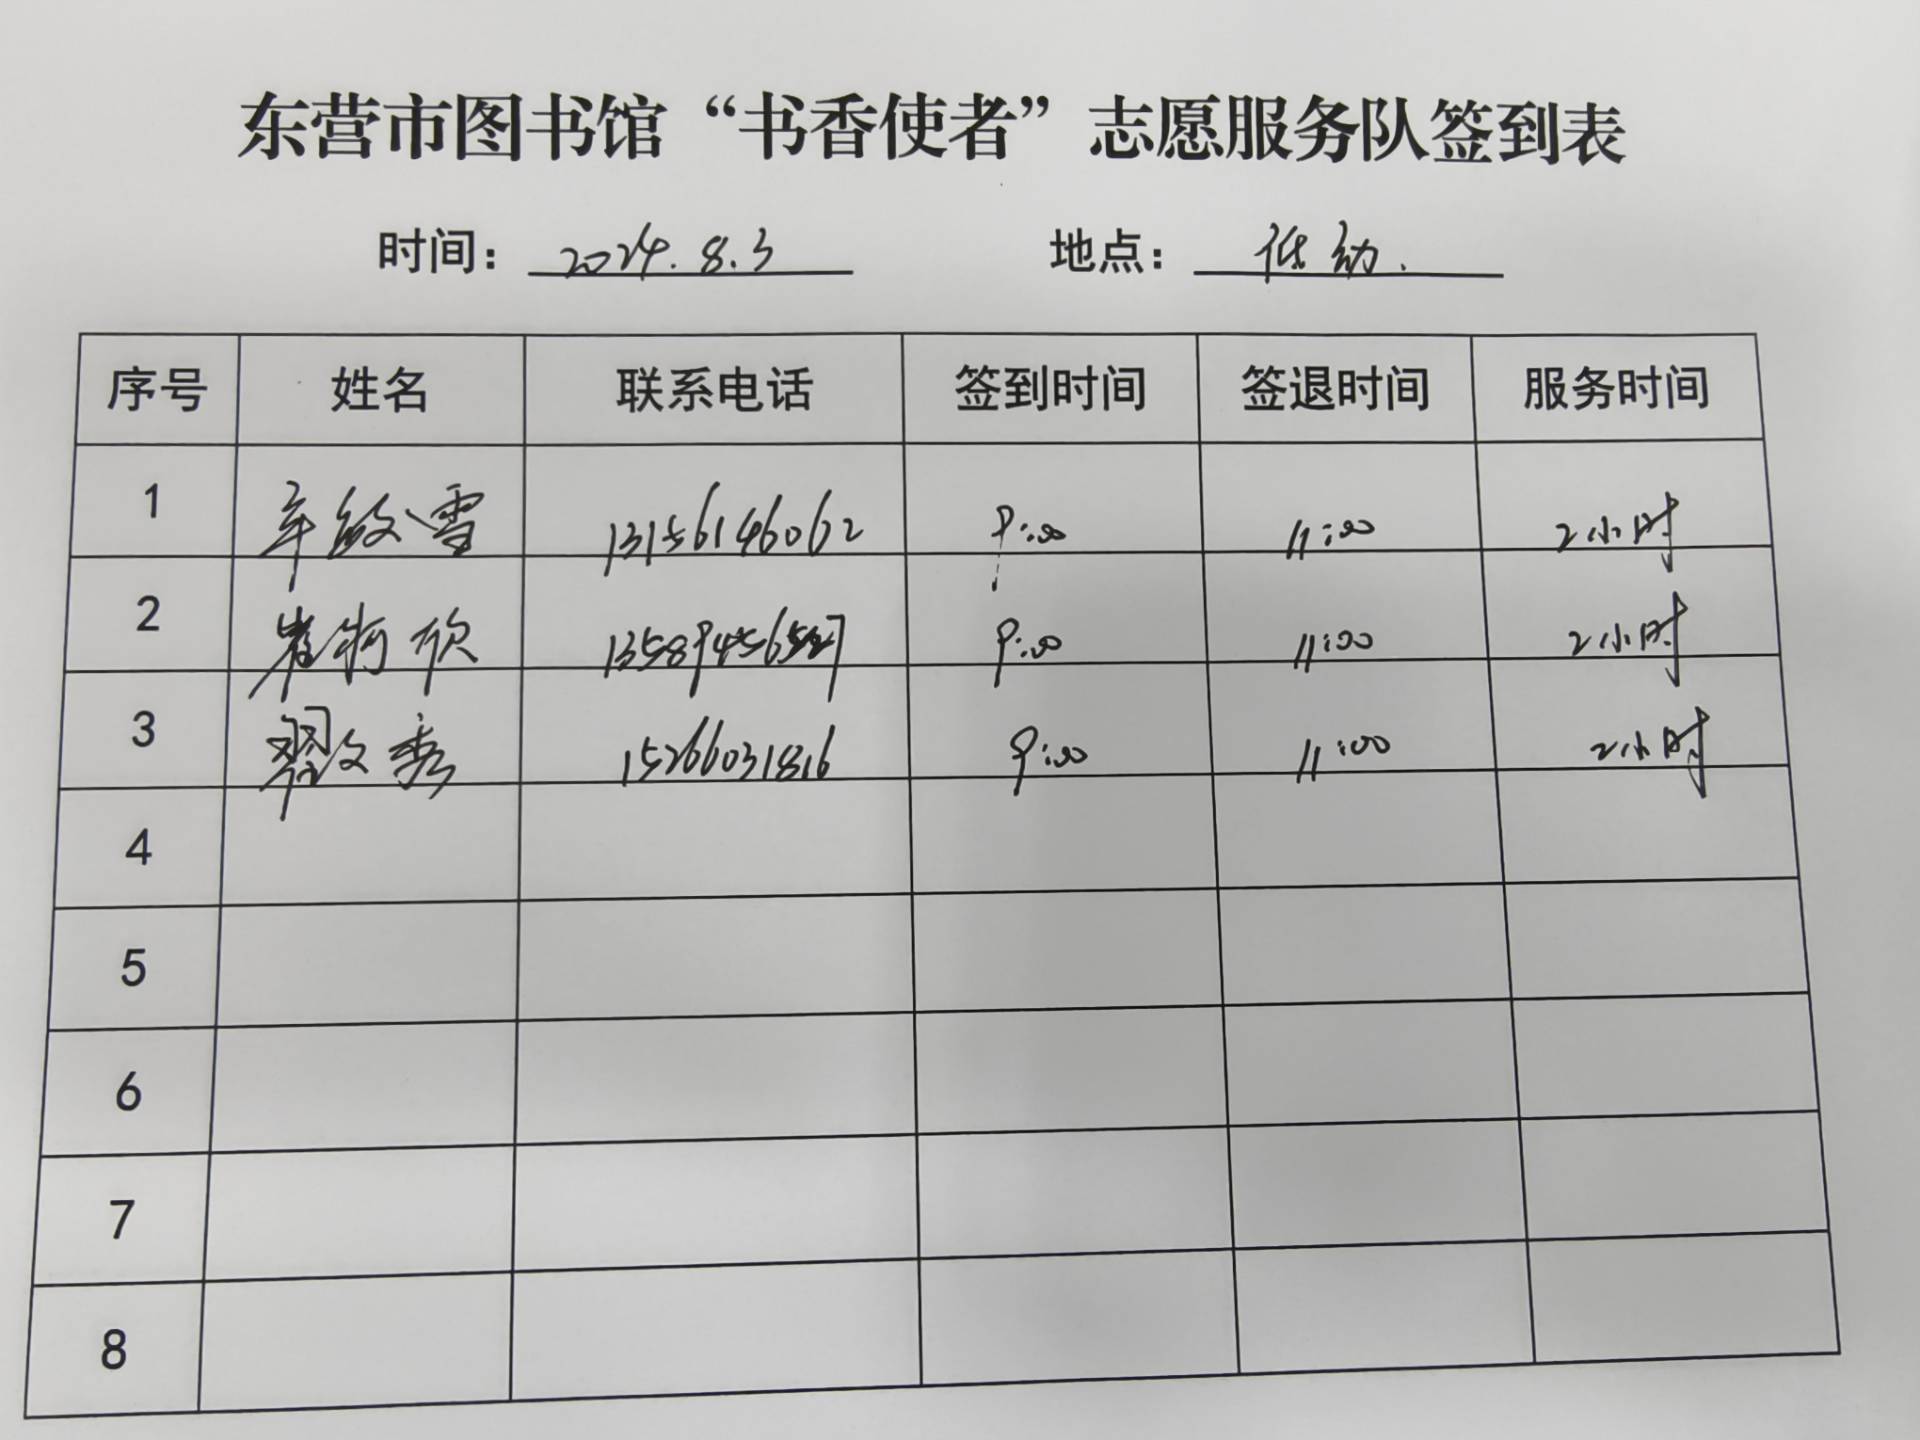 东营市图书馆“书香使者”志愿服务队签到表
时间：2024.8.3 地点：低幼.
序号 姓名 联系电话 签到时间 签退时间 服务时间
1 雪 13156146062 9:00 11:00 2小时
2 崔 欣 13589456527 9:00 11:00 2小时
3 翟文秀 15266031816 9:00 11:00 2小时
4
5
6
7
8